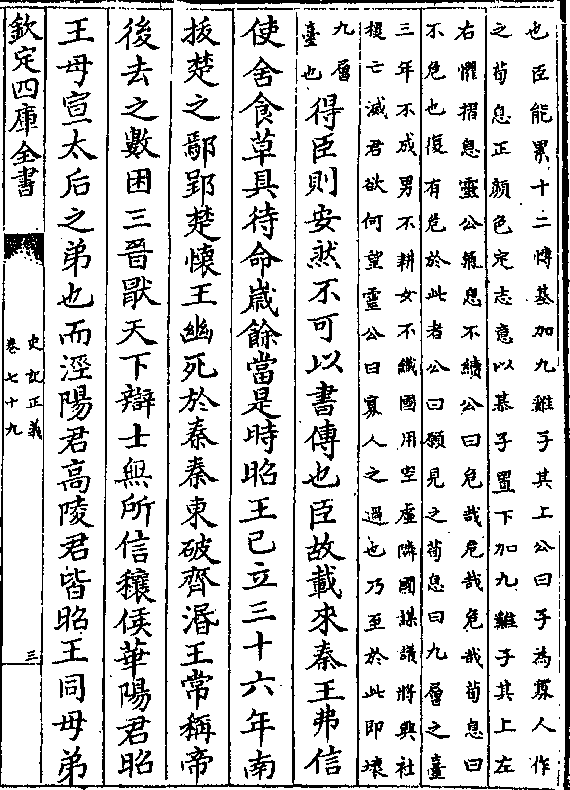 也臣能累十二博棊加九雞子其上公曰子為寡人作
之荀息正顔色定志意以棊子置下加九雞子其上左
右懼摺息靈公氣息不續公曰危哉危哉危哉荀息曰
不危也復有危於此者公曰願見之荀息曰九層之臺
三年不成男不耕女不織國用空虛隣國謀議將興社
稷亡滅君欲何望靈公曰寡人之過也乃至於此即壞
九層
臺也
得臣則安然不可以書傳也臣故載來秦王弗信
使舍食草具待命嵗餘當是時昭王已立三十六年南
拔楚之鄢郢楚懷王幽死於秦秦東破齊湣王常稱帝
後去之數困三晉厭天下辯士無所信穰侯華陽君昭
王母宣太后之弟也而涇陽君高陵君皆昭王同母弟
欽定四庫全書
史記正義
卷七十九
三